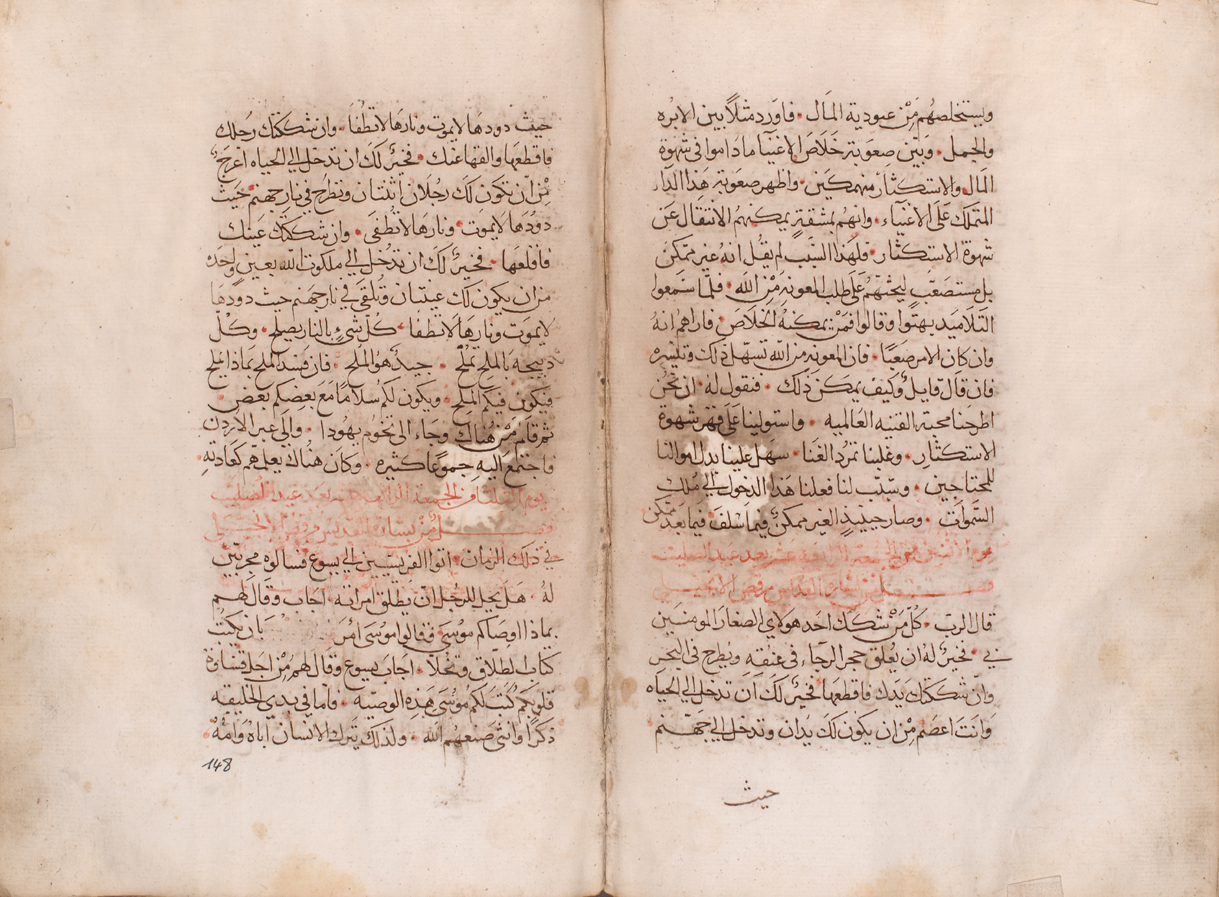 ويستخلصهم من عبودية المال فاورد مثلاً بين الابره
والجمل وبين صعوبة خلاص الاغنيآ ماداموا في شهوة
المال والاستكثار منهمكين واظهر صعوبة هذا الدآء
المتملك على الاغنيآء وانهم بمشقةٍ يمكنهم الانتقال عن
شهوة الاستكثار فلهذا السبب لم يقل انه غير ممكن
بل مستصعب ليحثهم على طلب المعونه من الله فلمّا سمعوا
التلاميد بهتوا وقالوا فمن يمكنه الخلاص فاراهم انه
وان كان الامر صعبًا فان المعونه من الله تسهل ذلك وتيسره
فان قال قايل وكيف يمكن ذلك فنقول له ان نحن
اطرحنا محبة القنيه العالميه واستولينا على قهر شهوة
الاستكثار وغلبنا تمرد الغنا سهل علينا بدل اموالنا
للمحتاجين وسبب لنا فعلنا هذا الدخول الى ملك
السموات وصار حينيذٍ الغير ممكن فيما سلف فيما بعد ممكن
يوم الاثنين من الجمعه الرابعة عشر بعد عيد الصليب
فصل من بشارة القديس مرقص الانجيلي
قال الرب كل من شكك احد هولاي الصغار المومنين
بي فخير له ان يعلق حجر الرحا في عنقه ويطرح في البحر
وان شككتك يدك فاقطعها فخير لك ان تدخل الى الحياه
وانت اعصم من ان يكون لك يدان وتدخل الى جهنم
حيث
حيث دودها لا يموت ونارها لا تطفا وان شككتك رجلك
فاقطعها والقها عنك فخير لك ان تدخل الى الحياه اعرج
من ان تكون لك رجلان اثنتان وتطرح في نار جهنم حيث
دودها لا يموت ونارها لا تطفى وان شككتك عينك
فاقلعها فخير لك ان تدخل الى ملكوت الله بعين واحده
من ان يكون لك عينان وتلقى في نار جهنم حيث دودها
لا يموت ونارها لا تطفا كل شيءٍ بالنار يصلح وكل
دبيحة بالملح تملح جيد هو الملح فان فسد الملح بماذا يملح
فيكون فيكم الملح ويكون لكم سلامًا مع بعضكم بعض
ثم قام من هناك وجاء الى تخوم يهودا والى عبر الاردن
فاجتمع اليه جموعًا كثيره وكان هناك يعلمهم كعادته
يوم الثلثا من الجمعة الرابعة عشر بعد عيد الصليب
فصل من بشارة القديس مرقص الانجيلي
في ذلك الزمان اتوا الفريسيين الى يسوع فسالوه مجربين
له هل يحل للرجل ان يطلق امراته اجاب وقال لهم
بماذا اوصاكم موسى فقالوا موسى امر بان يكتب
كتاب لطلاق وتخلا اجاب يسوع وقال لهم من اجل قساوة
قلوبكم كتب لكم موسى هذه الوصيه فاما في بدي الخليقه
ذكرًا وانثى صنعهم الله ولذلك يترك الانسان اباه وامه
148